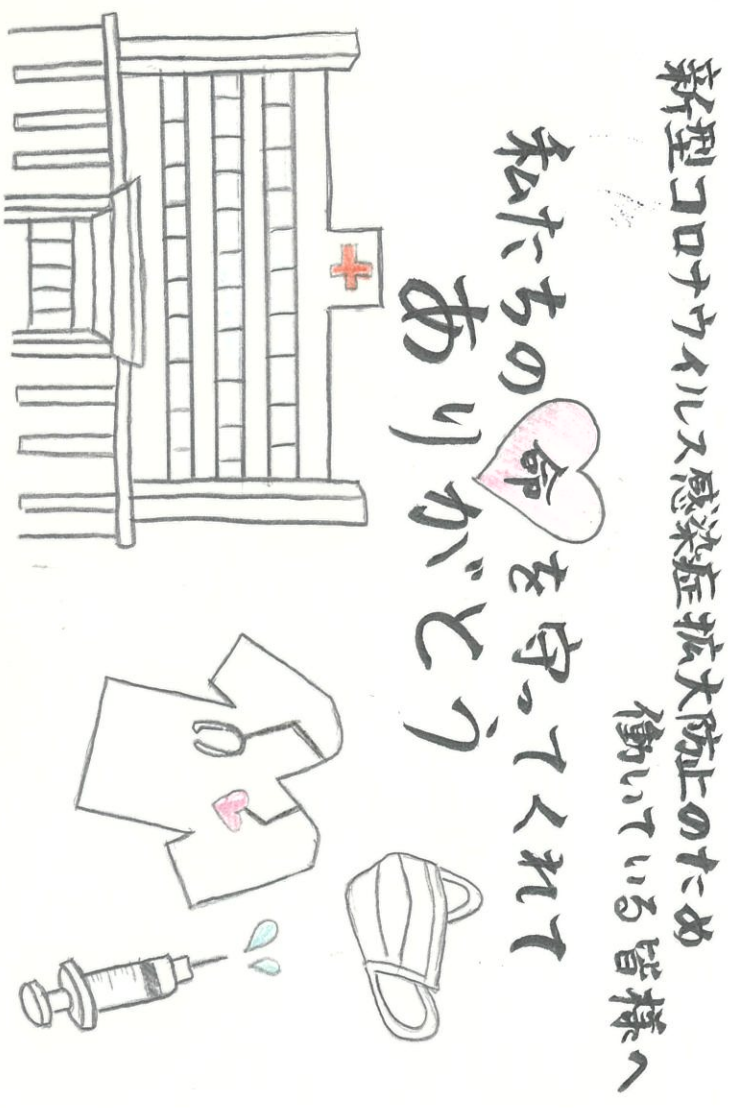 新型コロナウイルス感染症拡大防止のため
働いている皆様へ
私たちの命を守ってくれて
ありがとう